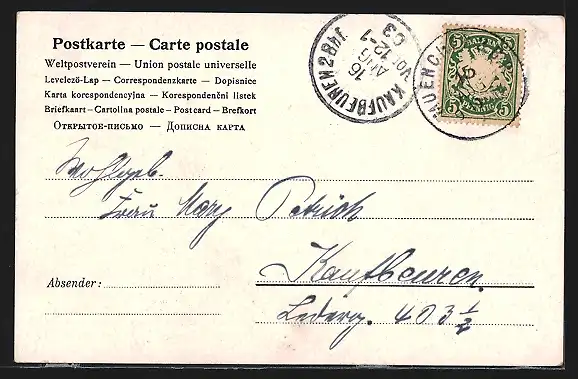 Postkarte — Carte postale
Weltpostverein — Union postale universelle
Levelező-Lap — Correspondenzkarte — Dopisnice
Karta korespondencyjna — Korespondenční listek
Briefkaart — Cartolina postale — Post card — Brefkort
Открытое письмо — Дописна карта
KAUFBEUREN
16
AUG
12-1
03
5 5
5 5
Wohlgeb.
Frau Mary Petrich
Kaufbeuren.
Absender:
Lederg. 403 ½